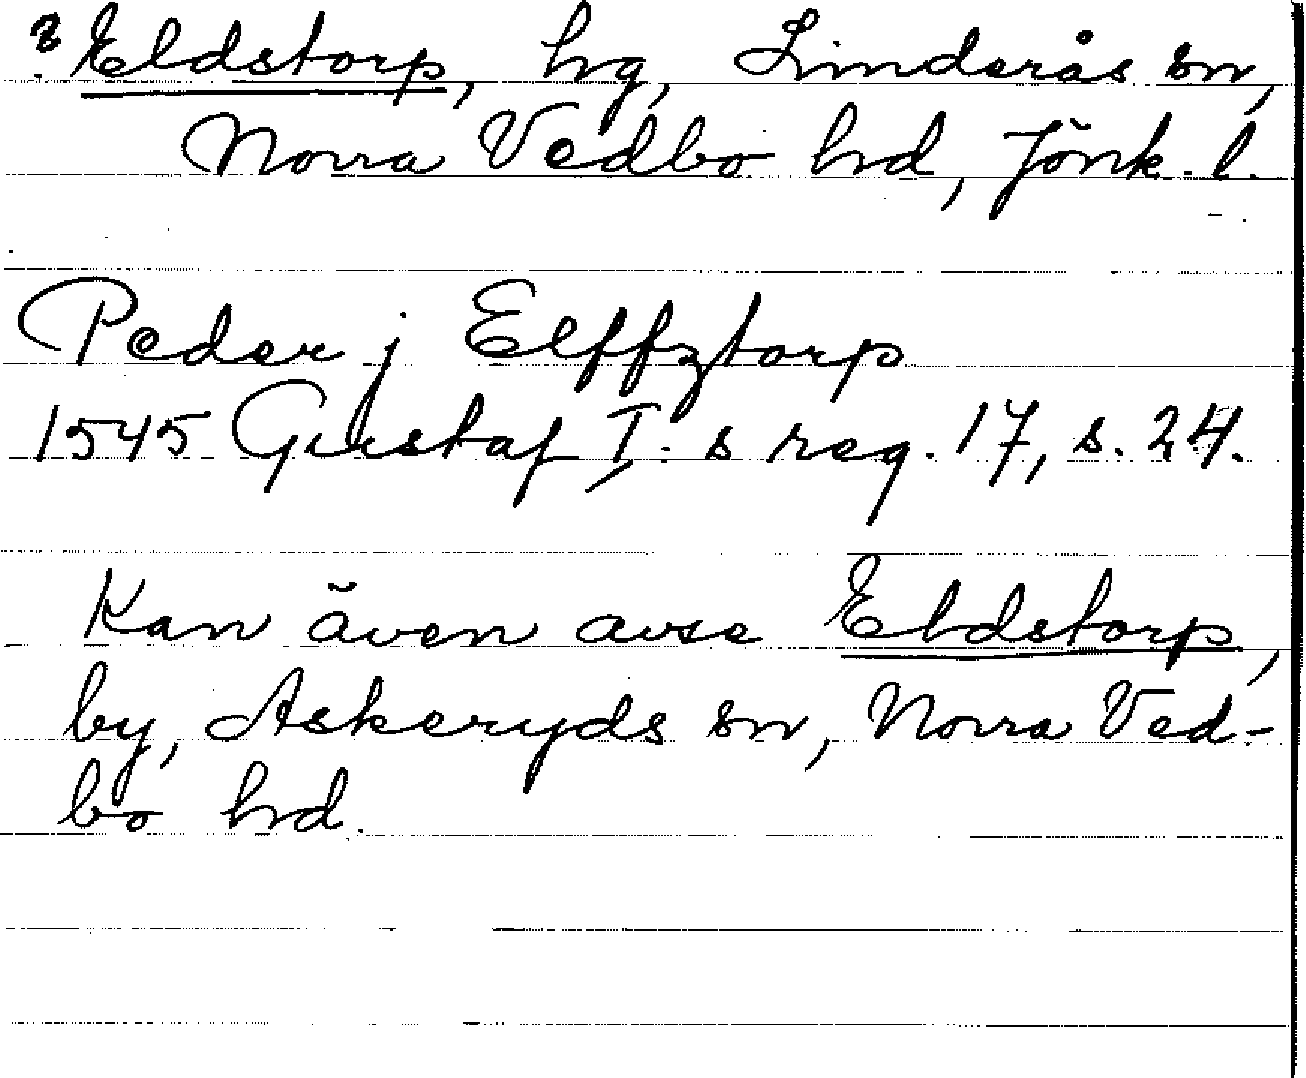 ? Eldstorp, hg, Linderås sn,
Norra Vedbo hd, Jönk. l.
Peder j Elffztorp
1545 Gustaf I:s reg. 17, s. 24.
Kan även avse Eldstorp,
by, Askeryds sn, Norra Ved-
bo hd.